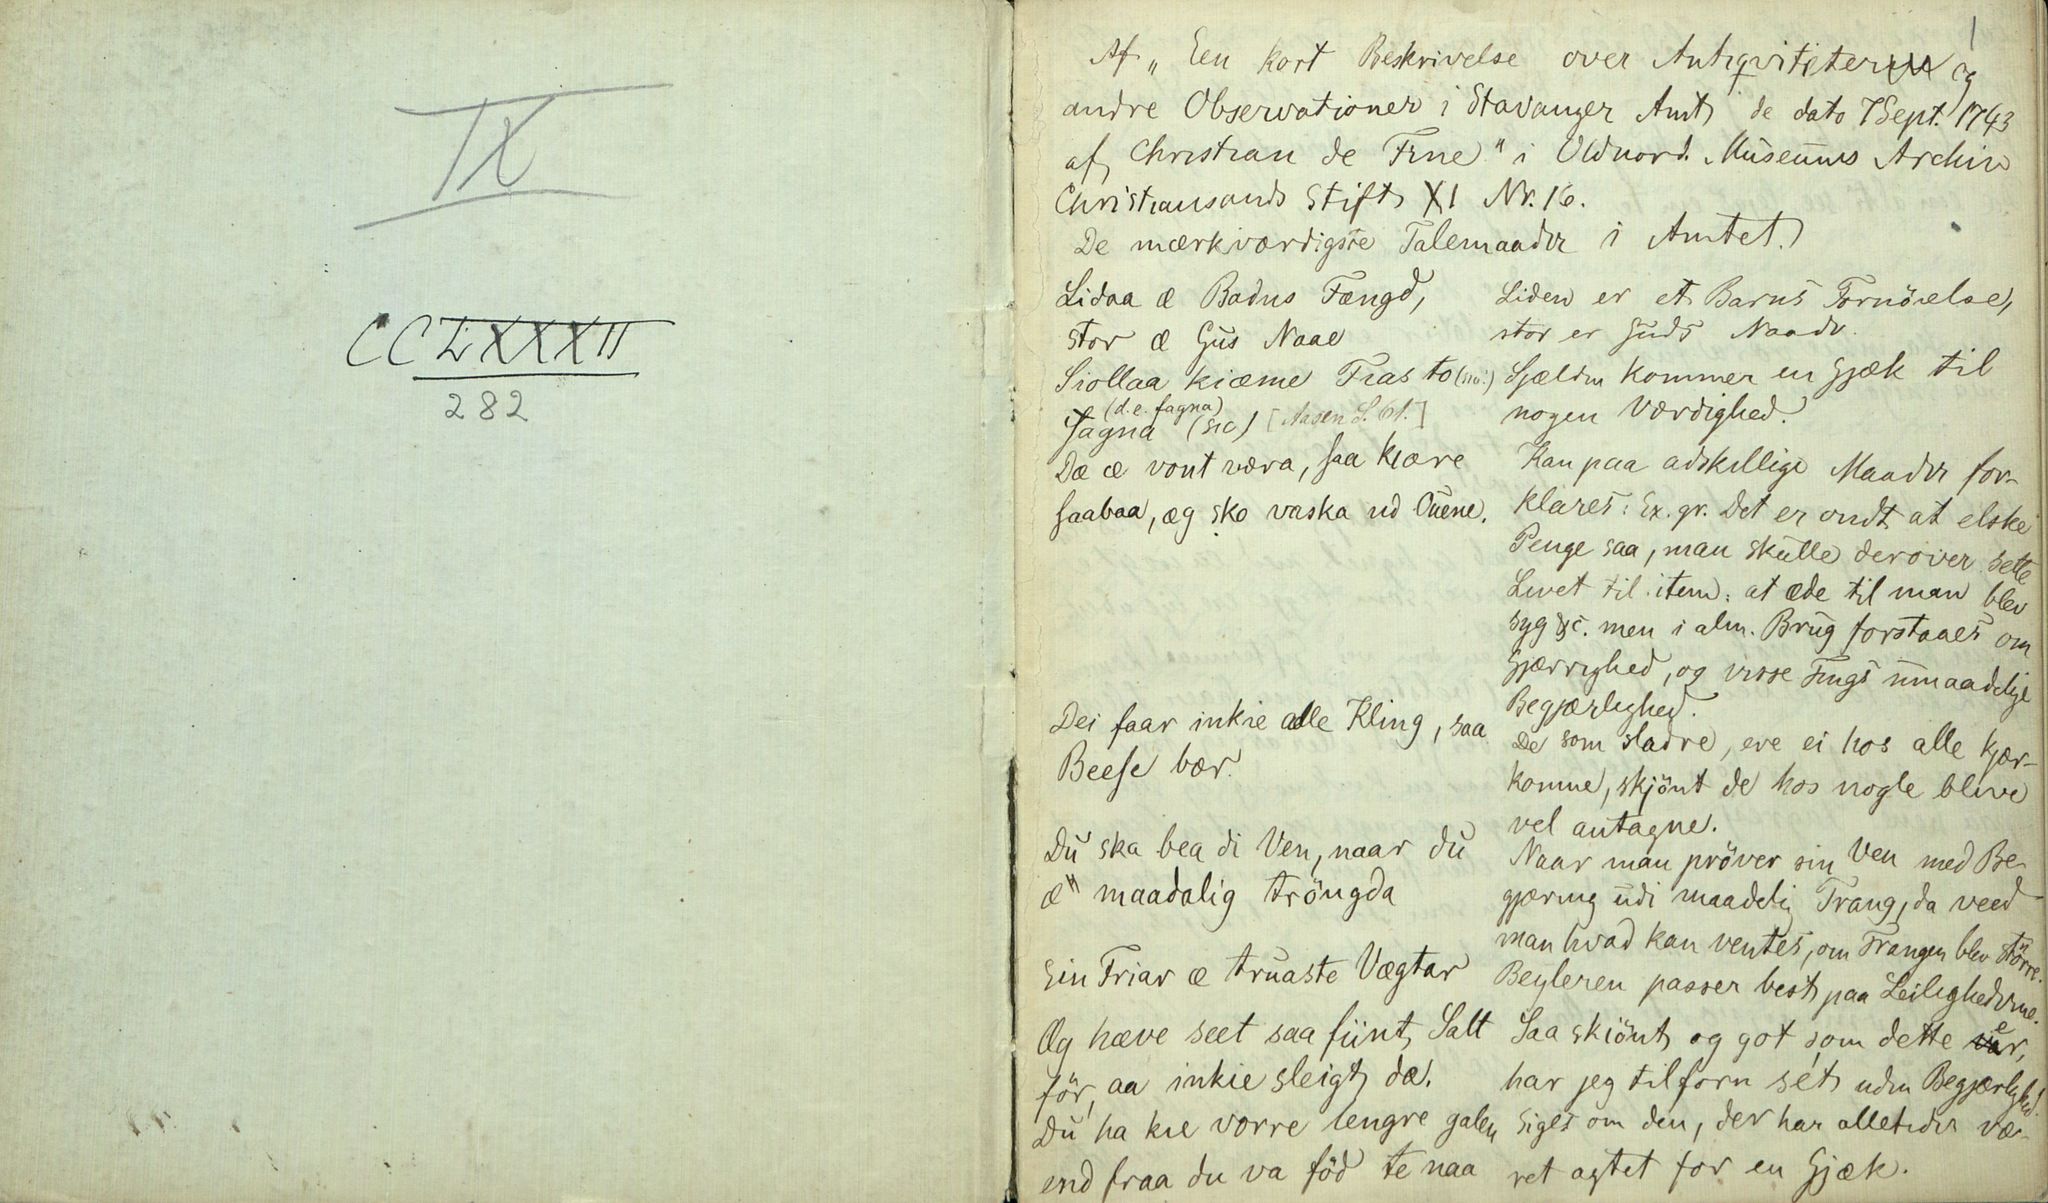 IX
CCLXXXII
282
1
Af „Een kort Beskrivelse over Antiqviteter og
andre Observationer i Stavanger Amt de dato 7 Sept. 1743
af Christian de Fine" i Oldnord. Museums Archiv
Christiansands Stift XI Nr. 16.
De mærkværdigste Talemaader i Amtet.
Lidaa æ Badns Fængd,
stor æ Gus Naae
Siollaa kiæme Fias to (sic!)
(d.e. fagna)
fagna (sic) [Aasen S. 61.]
Dæ æ vont væra, saa kiære
saabaa, æg sko vaska ud Öuene.
Dei faar inkie alle Kling, saa
Beese bær.
Du ska bea di Ven, naar du
æ maadalig tröngda
Ein Friar æ truaste Vægtar
Æg hæve seet saa fiint Salt
för, aa inkie sleigt dæ.
Du ha kie vorre lengre galen
end fraa du va föd te naa
Liden er et Barns Fornöielse,
stor er Guds Naade.
Sjælden kommer en Gjæk til
nogen Værdighed.
Kan paa adskillige Maader for-
klares: Ex. gr. Det er ondt at elske
Penge saa, man skulle derover sette
Livet til. item: at æde til man blev
syg &c. men i alm. Brug forstaaes om
Gjærrighed, og visse Tings umaadelige
Begjærlighed.
De som sladre, ere ei hos alle kjær-
komne, skjönt de hos nogle blive
vel antagne.
Naar man pröver sin Ven med Be-
gjæring udi maadelig Trang, da veed
man hvad kan ventes, om Trangen blev större.
Beyleren passer best paa Leilighederne.
Saa skiönt og got som dette er,
har jeg tilforn sét uden Begjærlighed.
Siges om den, der har alletider væ-
ret agtet for en Gjæk.